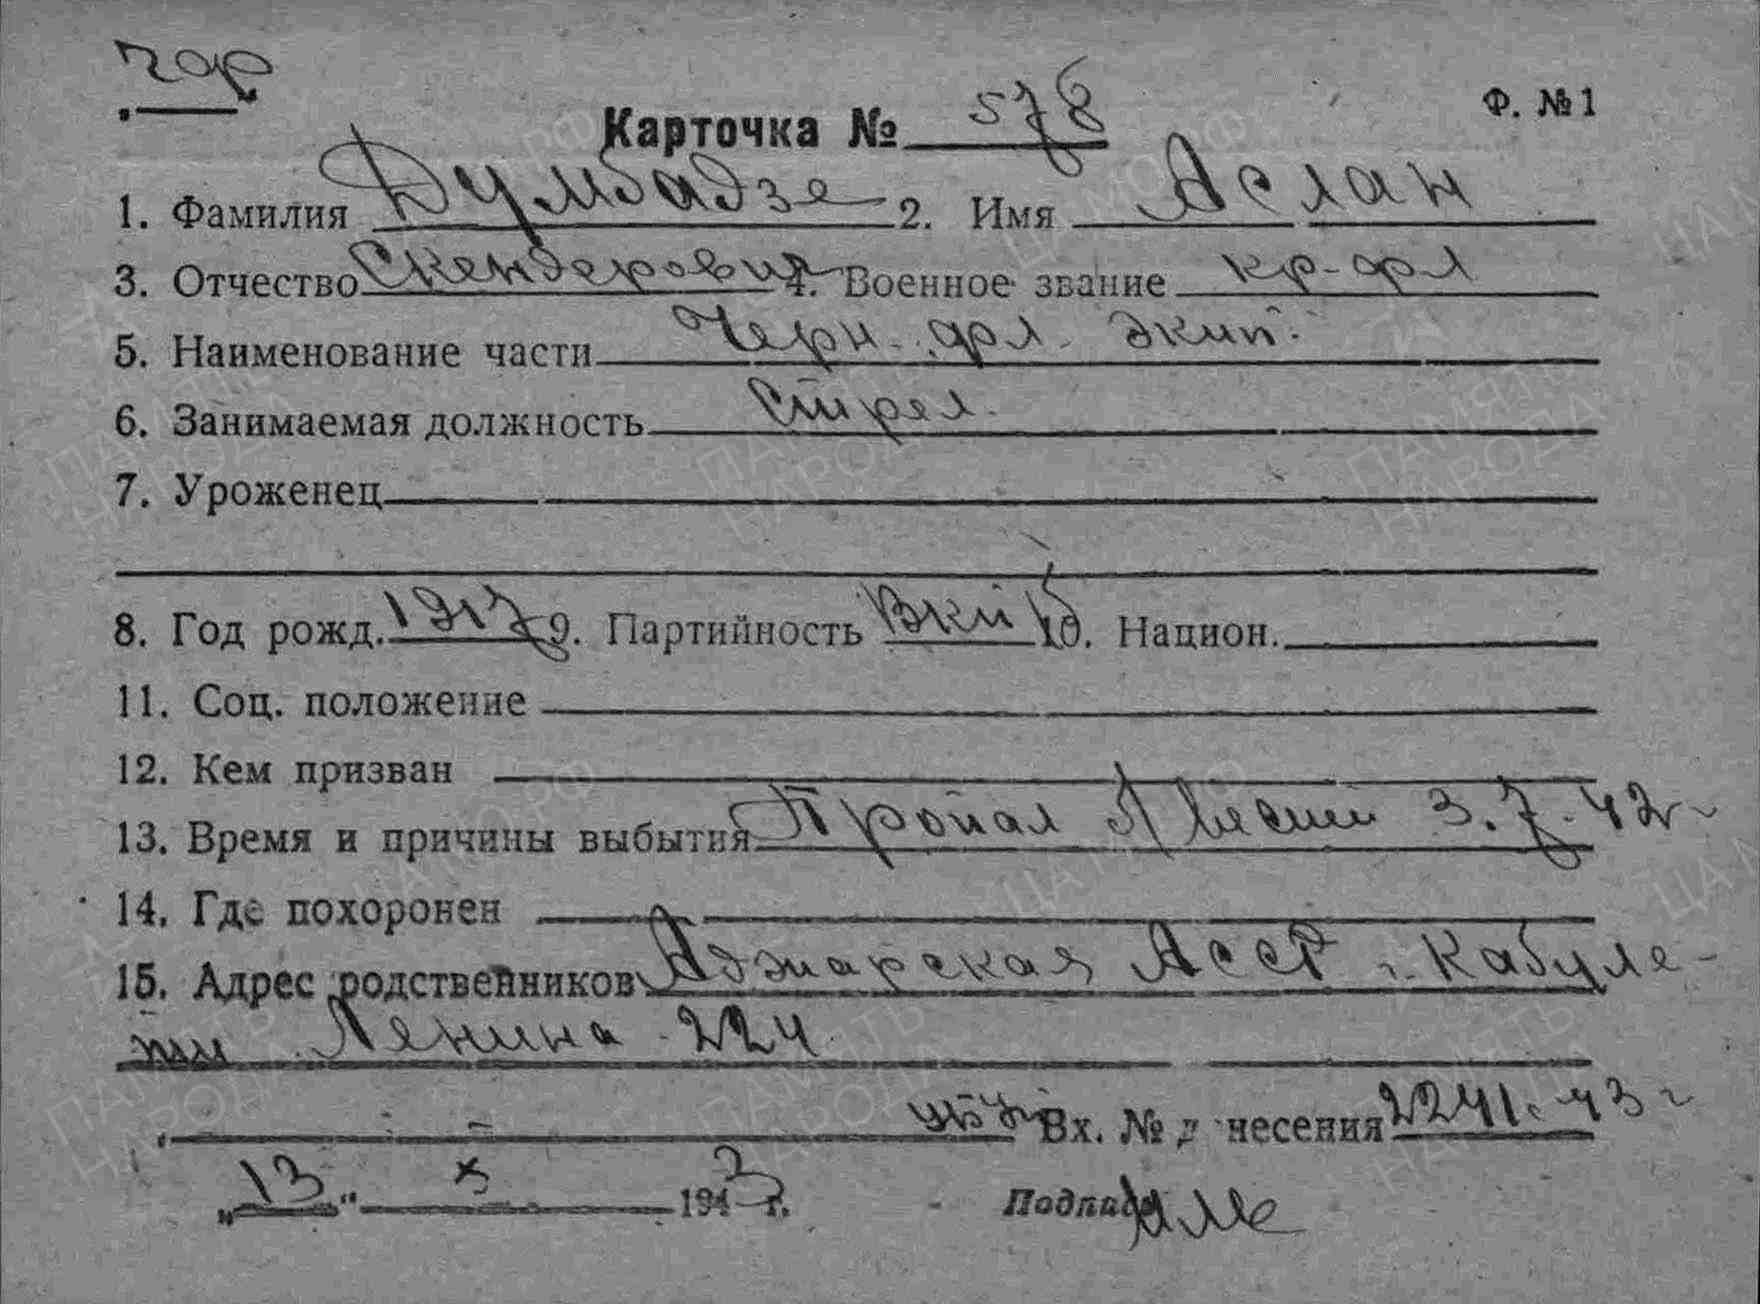 чф
Ф. № 1
Карточка № 578
1. Фамилия Думбадзе 2. Имя Аслан
3. Отчество Скендерович 4. Военное звание кр-фл
5. Наименование части Черн. фл. экип.
6. Занимаемая должность Стрел.
7. Уроженец
8. Год рожд. 1917 9. Партийность ВКПб 10. Национ.
11. Соц. положение
12. Кем призван
13. Время и причины выбытия Пропал вести 3.7.42 г
14. Где похоронен
15. Адрес родственников Аджарская АССР г. Кабуле-
ти Ленина 224
Вх. № д несения 2241. 43 г
"13" X 1943 г. Подпись